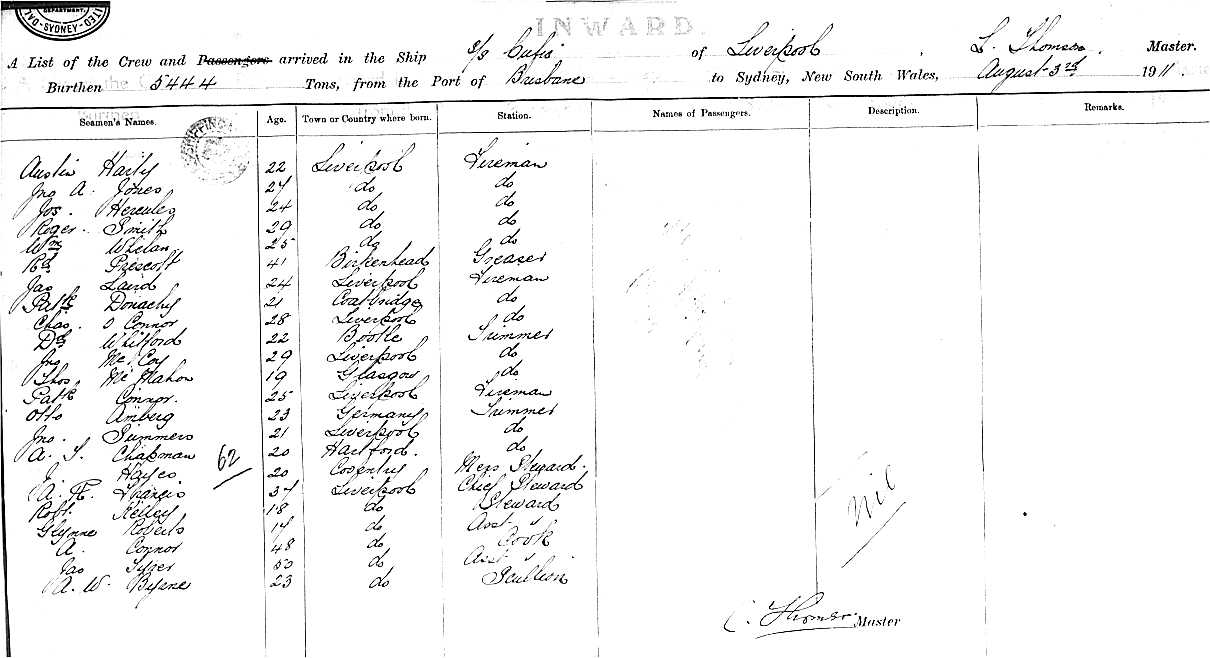 DEPARTMENT.
SYDNEY
INWARD.
A List of the Crew and Passengers arrived in the Ship S/S Cufic of Liverpool, L. Thomson. Master.
Burthen 5444 Tons, from the Port of Brisbane to Sydney, New South Wales, August 3rd 1911.
Seamen's Names. Age. Town or Country where born. Station. Names of Passengers. Description. Remarks.
Austin Haily 22 Liverpool Fireman
Jno A. Jones 27 do do
Jos. Hercules 24 do do
Roger Smith 29 do do
Wm Whelan 25 do do
Rd Prescott 41 Birkenhead Greaser
Jas Laird 24 Liverpool Fireman
Patk Donachy 21 Coatbridge do
Chas. O Connor 28 Liverpool do
Dd Whitford 22 Bootle Trimmer
Jno Mc Coy 29 Liverpool do
Thos Mc Mahon 19 Glasgow do
Patk Connor. 25 Liverpool Fireman
Otto Amberg 23 Germany Trimmer
Jno. Summers 21 Liverpool do
A. S. Chapman 20 Hartford. do
62
J. Hayes 20 Coventry Mess Steward.
A. H. Francis 37 Liverpool Chief Steward
Robt. Kelley 18 do Steward
Glynne Roberts 17 do Asst "
A. Connor 48 do Cook
Jas 50 do Asst "
A. W. Byrne 23 do Scullion
Nil
L. Thomson Master